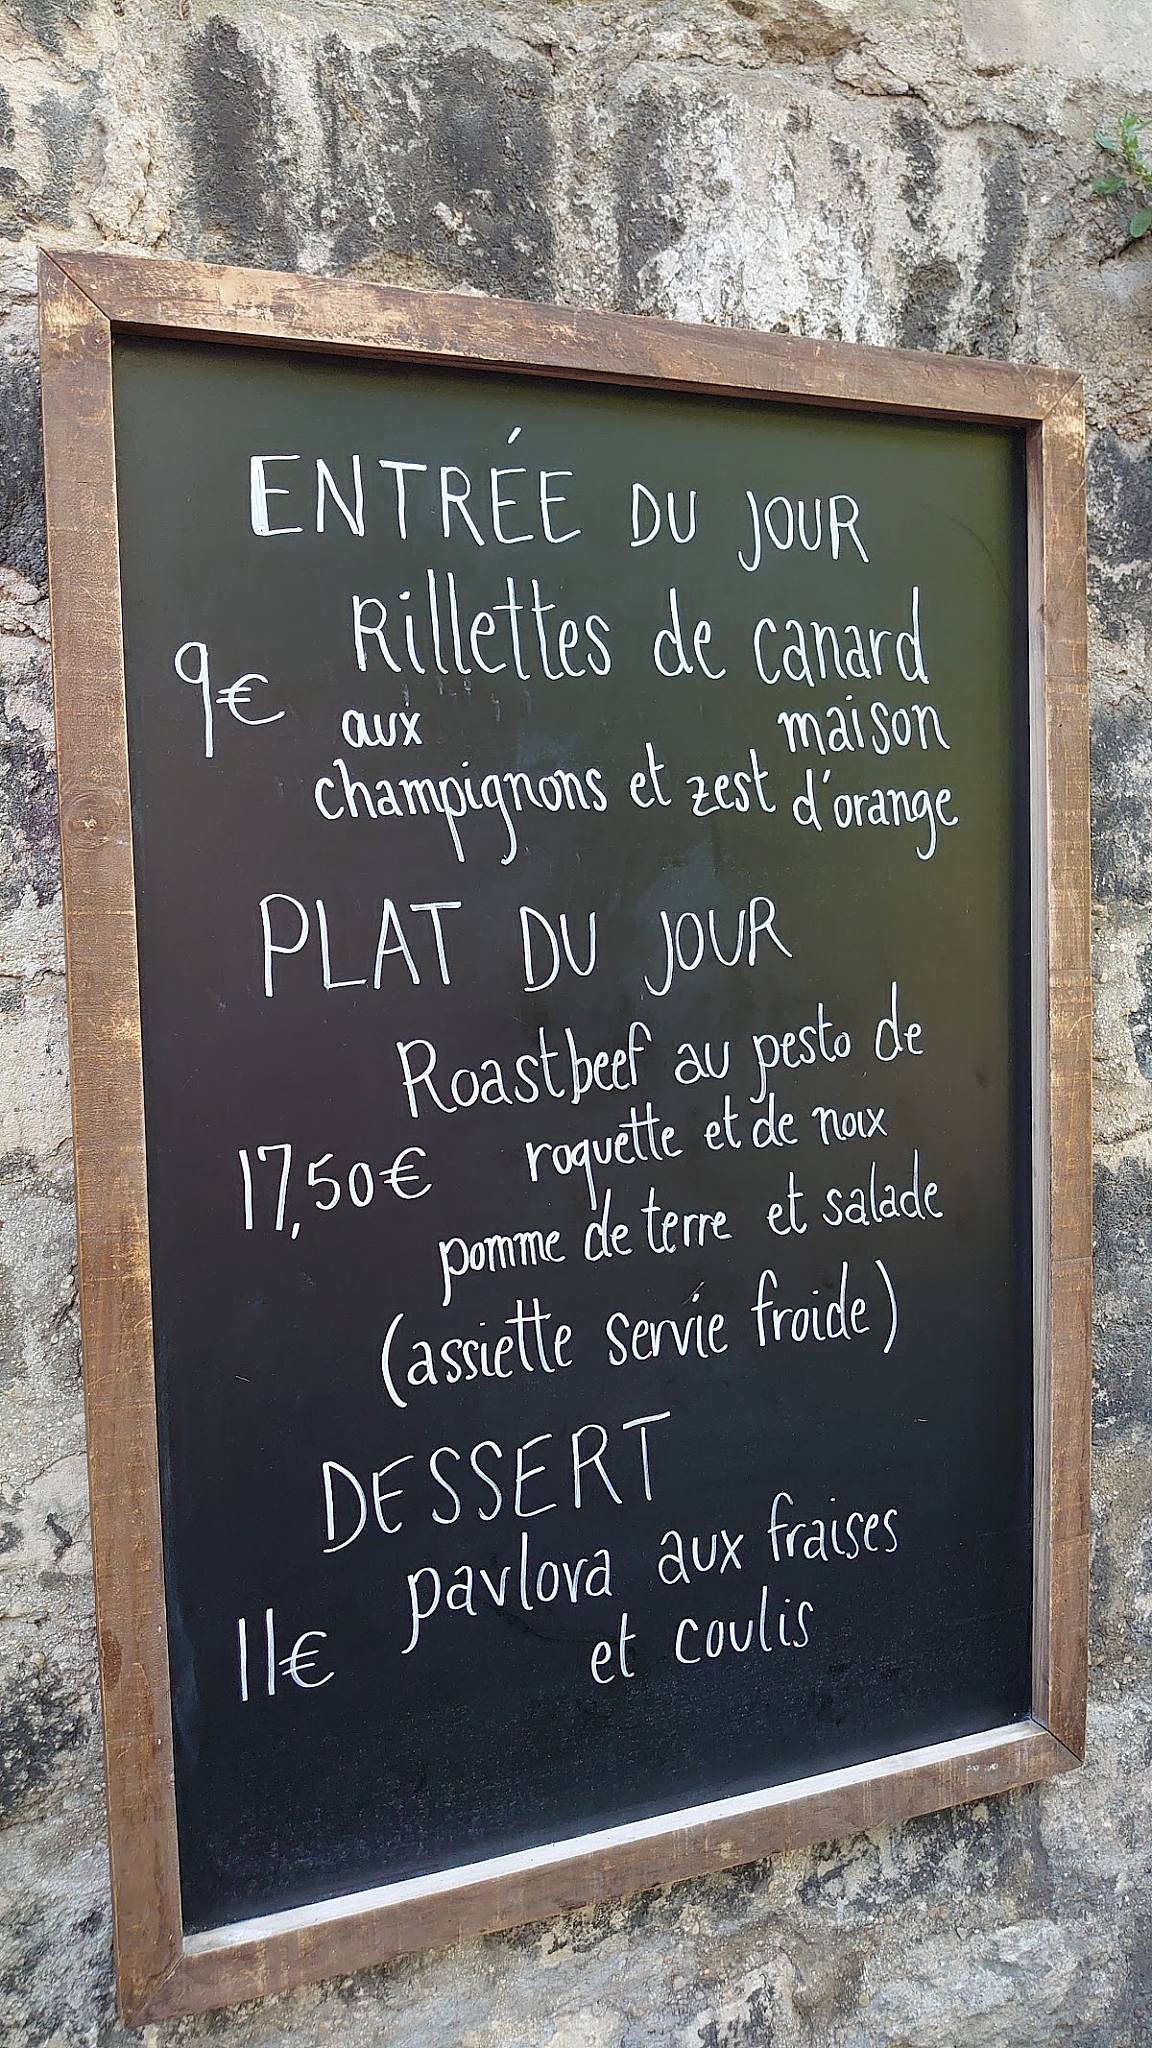 ENTRÉE DU JOUR
Rillettes de canard
9€ aux maison
champignons et zest d'orange
PLAT DU JOUR
Roastbeef au pesto de
roquette et de noix
17,50€
pomme de terre et salade
(assiette servie froide)
DESSERT
pavlova aux fraises
11€ et coulis